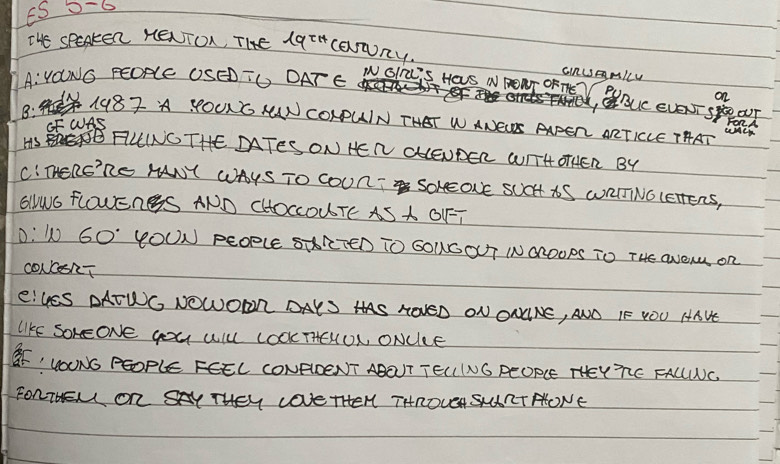 ES 5-6
THE SPEAKER MENTON THE 19TH CENTURY.
A: YOUNG PEOPLE USED TO DATE IN GIRL'S HOUS IN FRONT OF THE GIRLS FAMILY, PUBLIC EVENTS OR GO OUT FOR A WALK
B: IN 1987 A YOUNG MAN COMPLAIN THAT IN A NEWS PAPER ARTICLE THAT
HIS GF WAS FILLING THE DATES ON HER CALENDER WITH OTHER BY
C: THERE'RE MANY WAYS TO COURT SOMEONE SUCH AS WRITING LETTERS,
GIVING FLOWERS AND CHOCCOLATE AS A GIFT
D: IN 60' YOUN PEOPLE STARTED TO GOING OUT IN GROOPS TO THE OR
CONCERT
e: YES DATING DAYS HAS MOVED ON ONLINE, AND IF YOU HAVE
LIKE SOMEONE YOU WILL LOOK THEM ON ONLINE
F: YOUNG PEOPLE FEEL CONFIDENT ABOUT TELLING PEOPLE THEY'RE FALLING
FOR THEM OR SAY THEY LOVE THEM THROUGH SMARTPHONE